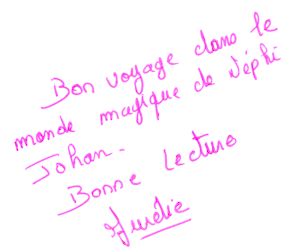 Bon voyage dans le
monde magique de Néphi
Johan.
Bonne Lecture
Aurélie